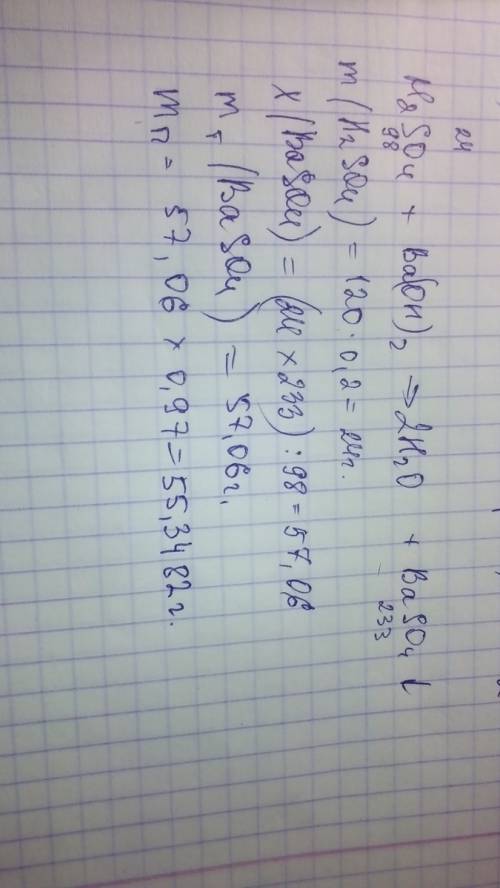 24
H2SO4 + Ba(OH)2 → 2H2O + BaSO4 ↓
98 233
m (H2SO4) = 120 · 0,2 = 24г.
X (BaSO4) = (24 × 233) : 98 = 57,06
m т (BaSO4) = 57,06 г.
m п = 57,06 × 0,97 = 55,3482 г.